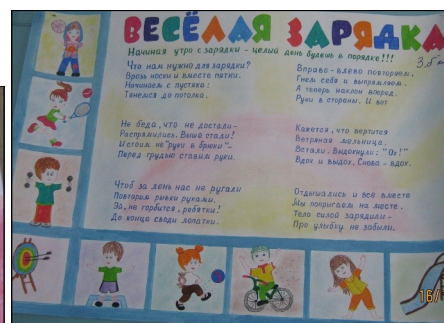 ВЕСЁЛАЯ ЗАРЯДКА
Начиная утро с зарядки - целый день будешь в порядке!!!
Что нам нужно для зарядки?
Врозь носки и вместе пятки.
Начинаем с пустяка:
Тянемся до потолка.
Не беда, что не достали-
Распрямились. Выше стали!
И стоим не "руки в брюки"-
Перед грудью ставим руки.
Чтоб за лень нас не ругали
Повторим рывки руками.
За, не горбится, ребятки!
До конца сводим лопатки.
Вправо-влево повторяем.
Гнём себя и выпрямляем.
А теперь наклон вперёд.
Руки в стороны. И вот
Кажется, что вертится
Ветряная мельница.
Встали. Выдохнули: "Ох!"
Вдох и выдох. Снова - вдох.
Отдышались и всё вместе
Мы попрыгаем на месте.
Тело силой зарядили-
Про улыбку не забыли.
16/